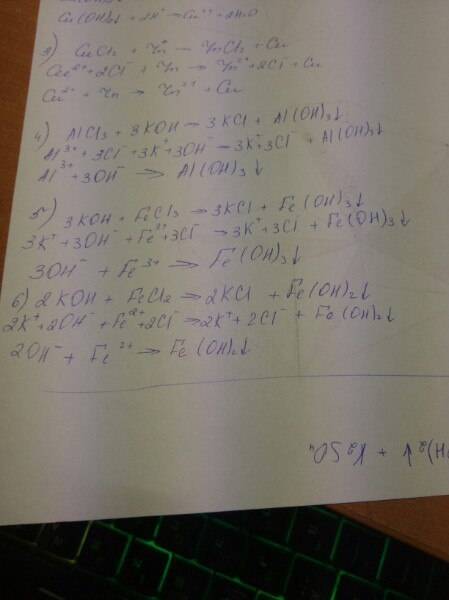 Cu(OH)₂↓ + 2H⁺ → Cu²⁺ + 2H₂O
3) CuCl₂ + Zn → ZnCl₂ + Cu
Cu²⁺ + 2Cl⁻ + Zn → Zn²⁺ + 2Cl⁻ + Cu
Cu²⁺ + Zn → Zn²⁺ + Cu
4) AlCl₃ + 3KOH → 3KCl + Al(OH)₃↓
Al³⁺ + 3Cl⁻ + 3K⁺ + 3OH⁻ → 3K⁺ + 3Cl⁻ + Al(OH)₃↓
Al³⁺ + 3OH⁻ → Al(OH)₃↓
5) 3KOH + FeCl₃ → 3KCl + Fe(OH)₃↓
3K⁺ + 3OH⁻ + Fe³⁺ + 3Cl⁻ → 3K⁺ + 3Cl⁻ + Fe(OH)₃↓
3OH⁻ + Fe³⁺ → Fe(OH)₃↓
6) 2KOH + FeCl₂ → 2KCl + Fe(OH)₂↓
2K⁺ + 2OH⁻ + Fe²⁺ + 2Cl⁻ → 2K⁺ + 2Cl⁻ + Fe(OH)₂↓
2OH⁻ + Fe²⁺ → Fe(OH)₂↓
H)₂↓ + K₂SO₄